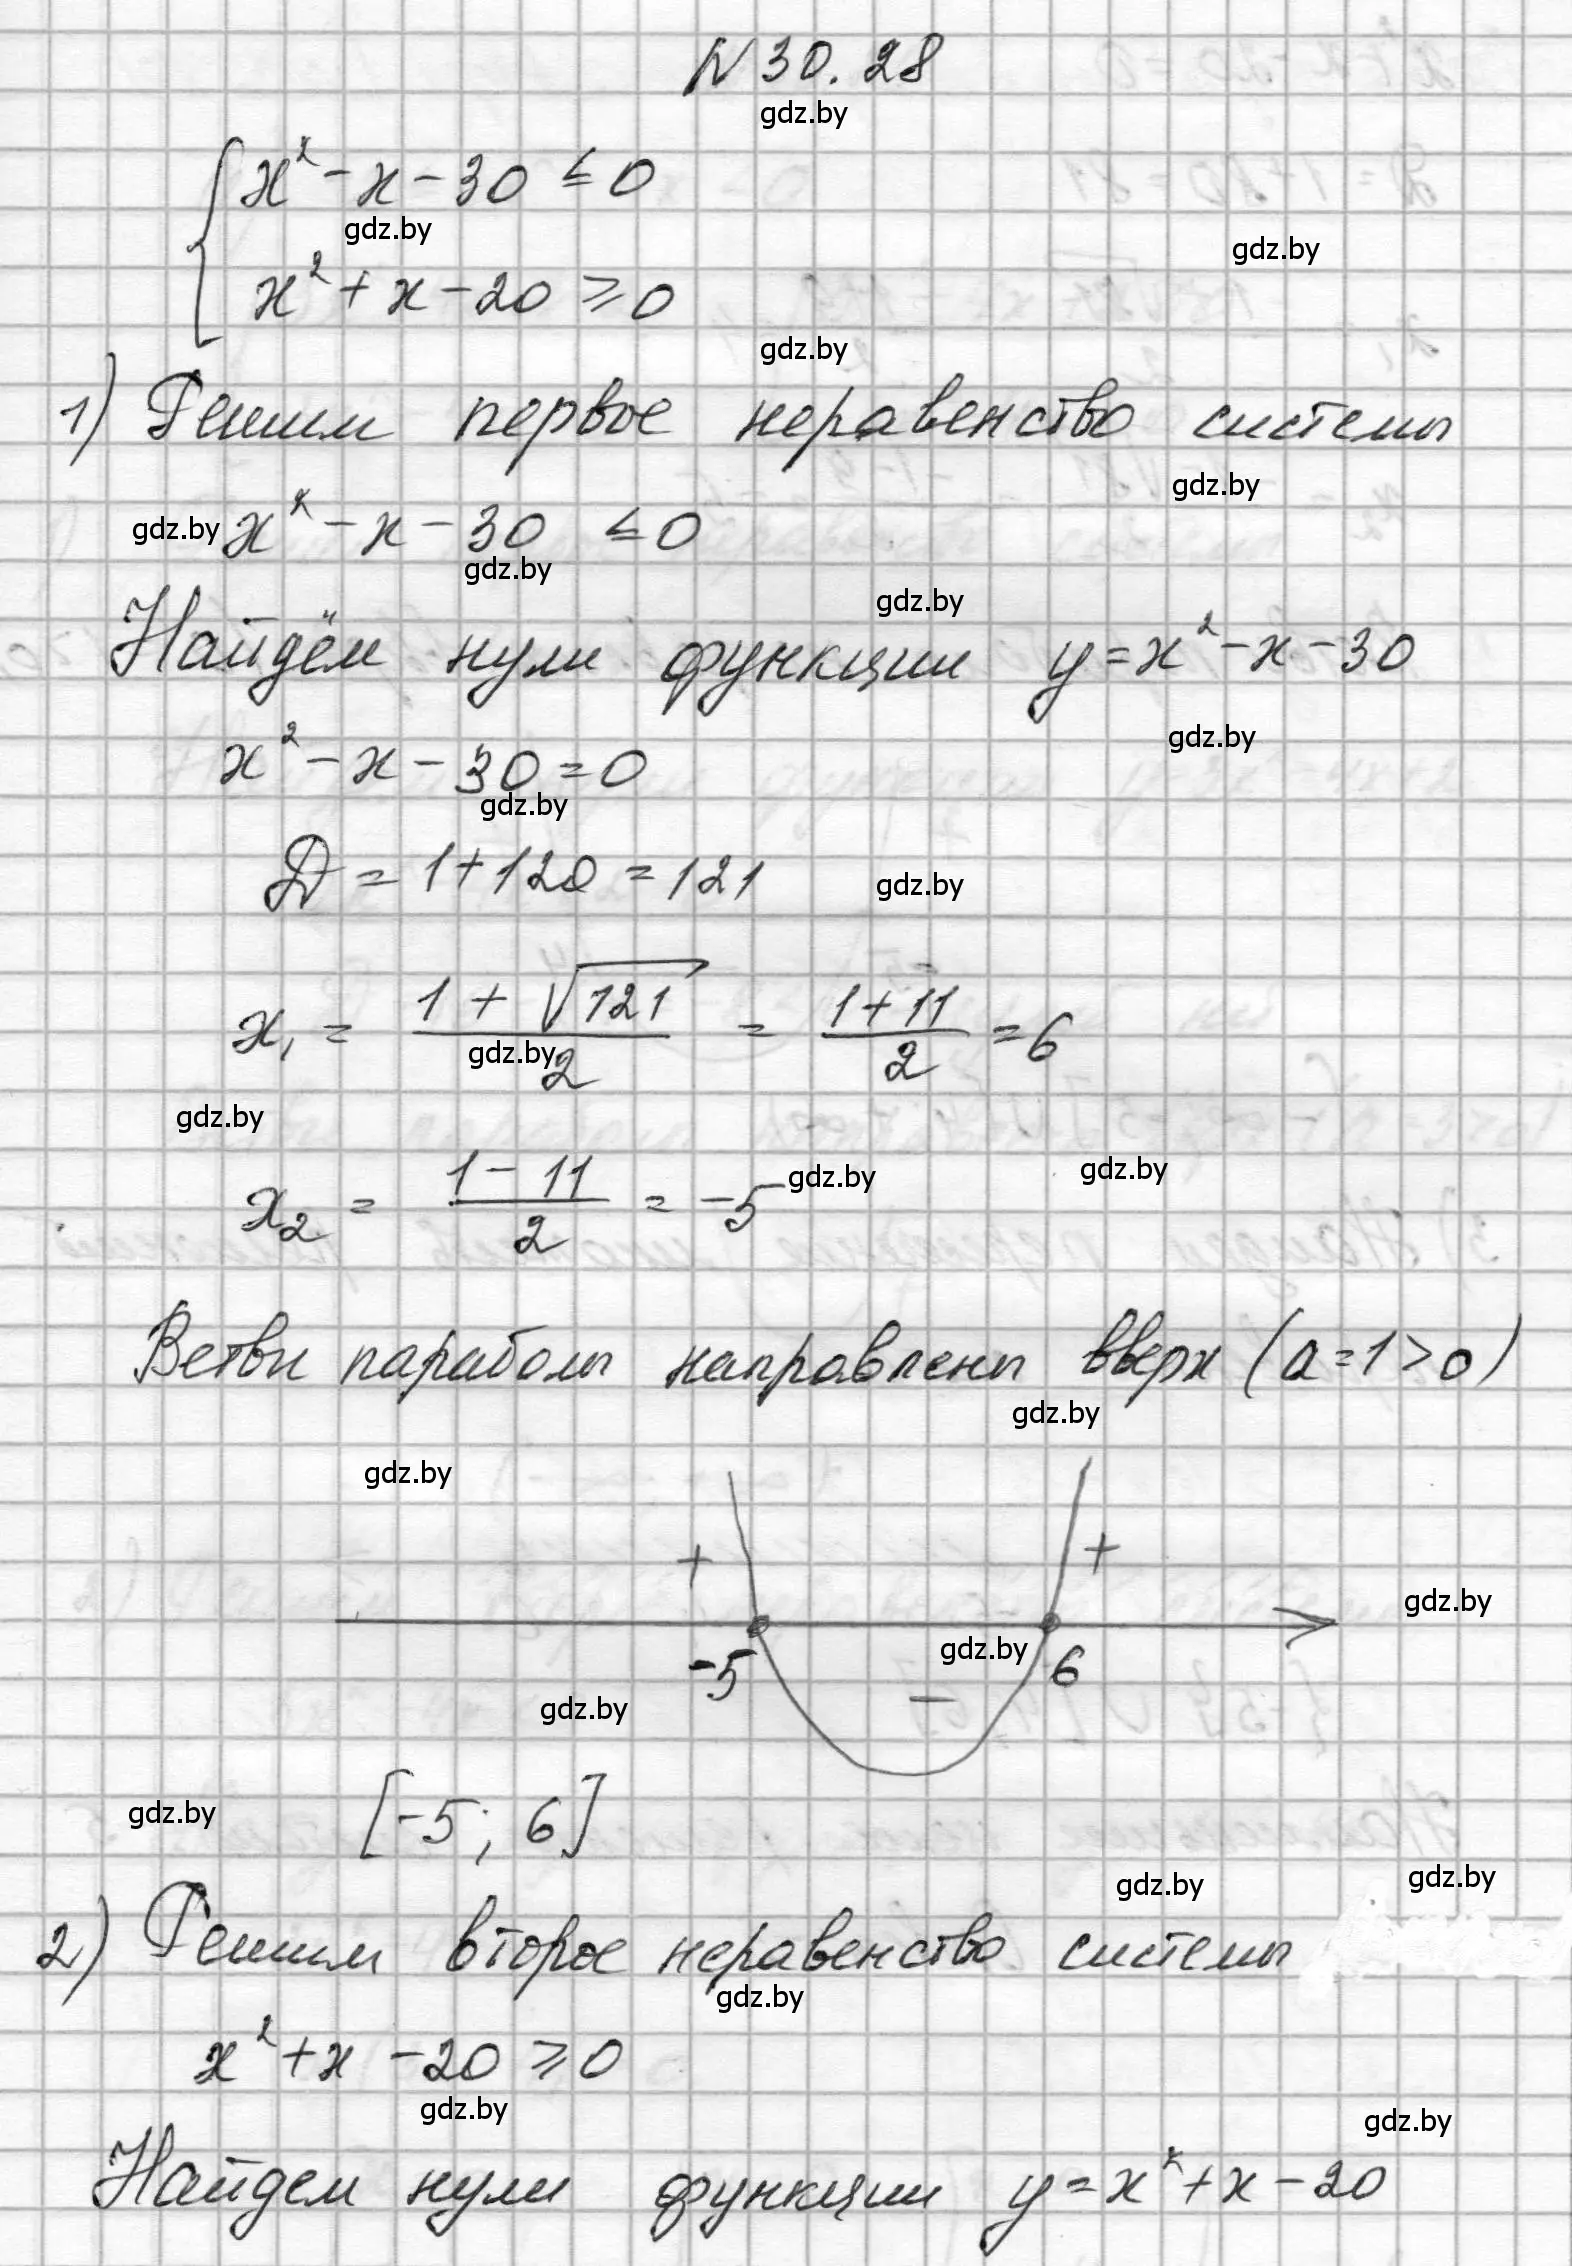 N 30.28
gdz.by
x² - x - 30 ≤ 0
gdz.by
gdz.by
x² + x - 20 ≥ 0
gdz.by
1) Решим первое неравенство системы
gdz.by
gdz.by x² - x - 30 ≤ 0
gdz.by
gdz.by
Найдём нули функции y = x² - x - 30
gdz.by
x² - x - 30 = 0
gdz.by
D = 1 + 120 = 121
gdz.by
x₁ = (1 + √121)/2 = (1 + 11)/2 = 6
gdz.by
gdz.by
x₂ = (1 - 11)/2 = -5
gdz.by
gdz.by
Ветви параболы направлены вверх (a = 1 > 0)
gdz.by
gdz.by
+ +
gdz.by
-5 gdz.by 6
gdz.by -
gdz.by [-5; 6]
gdz.by
gdz.by
2) Решим второе неравенство системы
gdz.by
x² + x - 20 ≥ 0
gdz.by
gdz.by
Найдем нули функции y = x² + x - 20